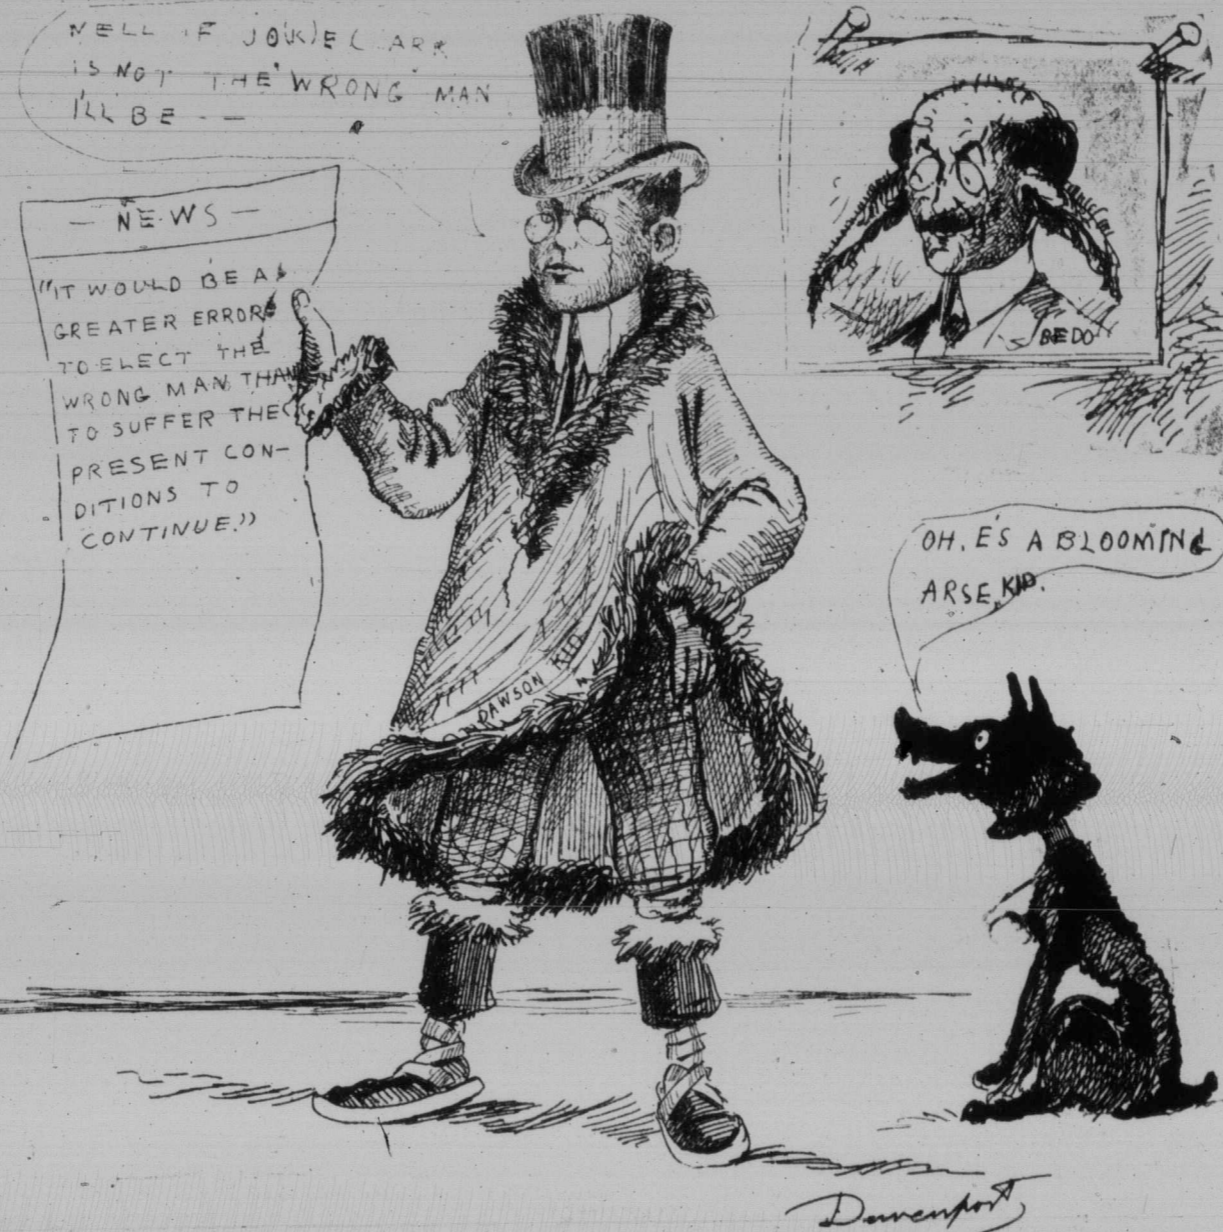 WELL IF JO(K)E CLARK
IS NOT THE "WRONG" MAN
I'LL BE - —
— NEWS —
"IT WOULD BE A
GREATER ERROR
TO ELECT THE
WRONG MAN THAN
TO SUFFER THE
PRESENT CON-
DITIONS TO
CONTINUE."
BEDO
OH, E'S A BLOOMING
ARSE, KID.
DAWSON KID
Davenport